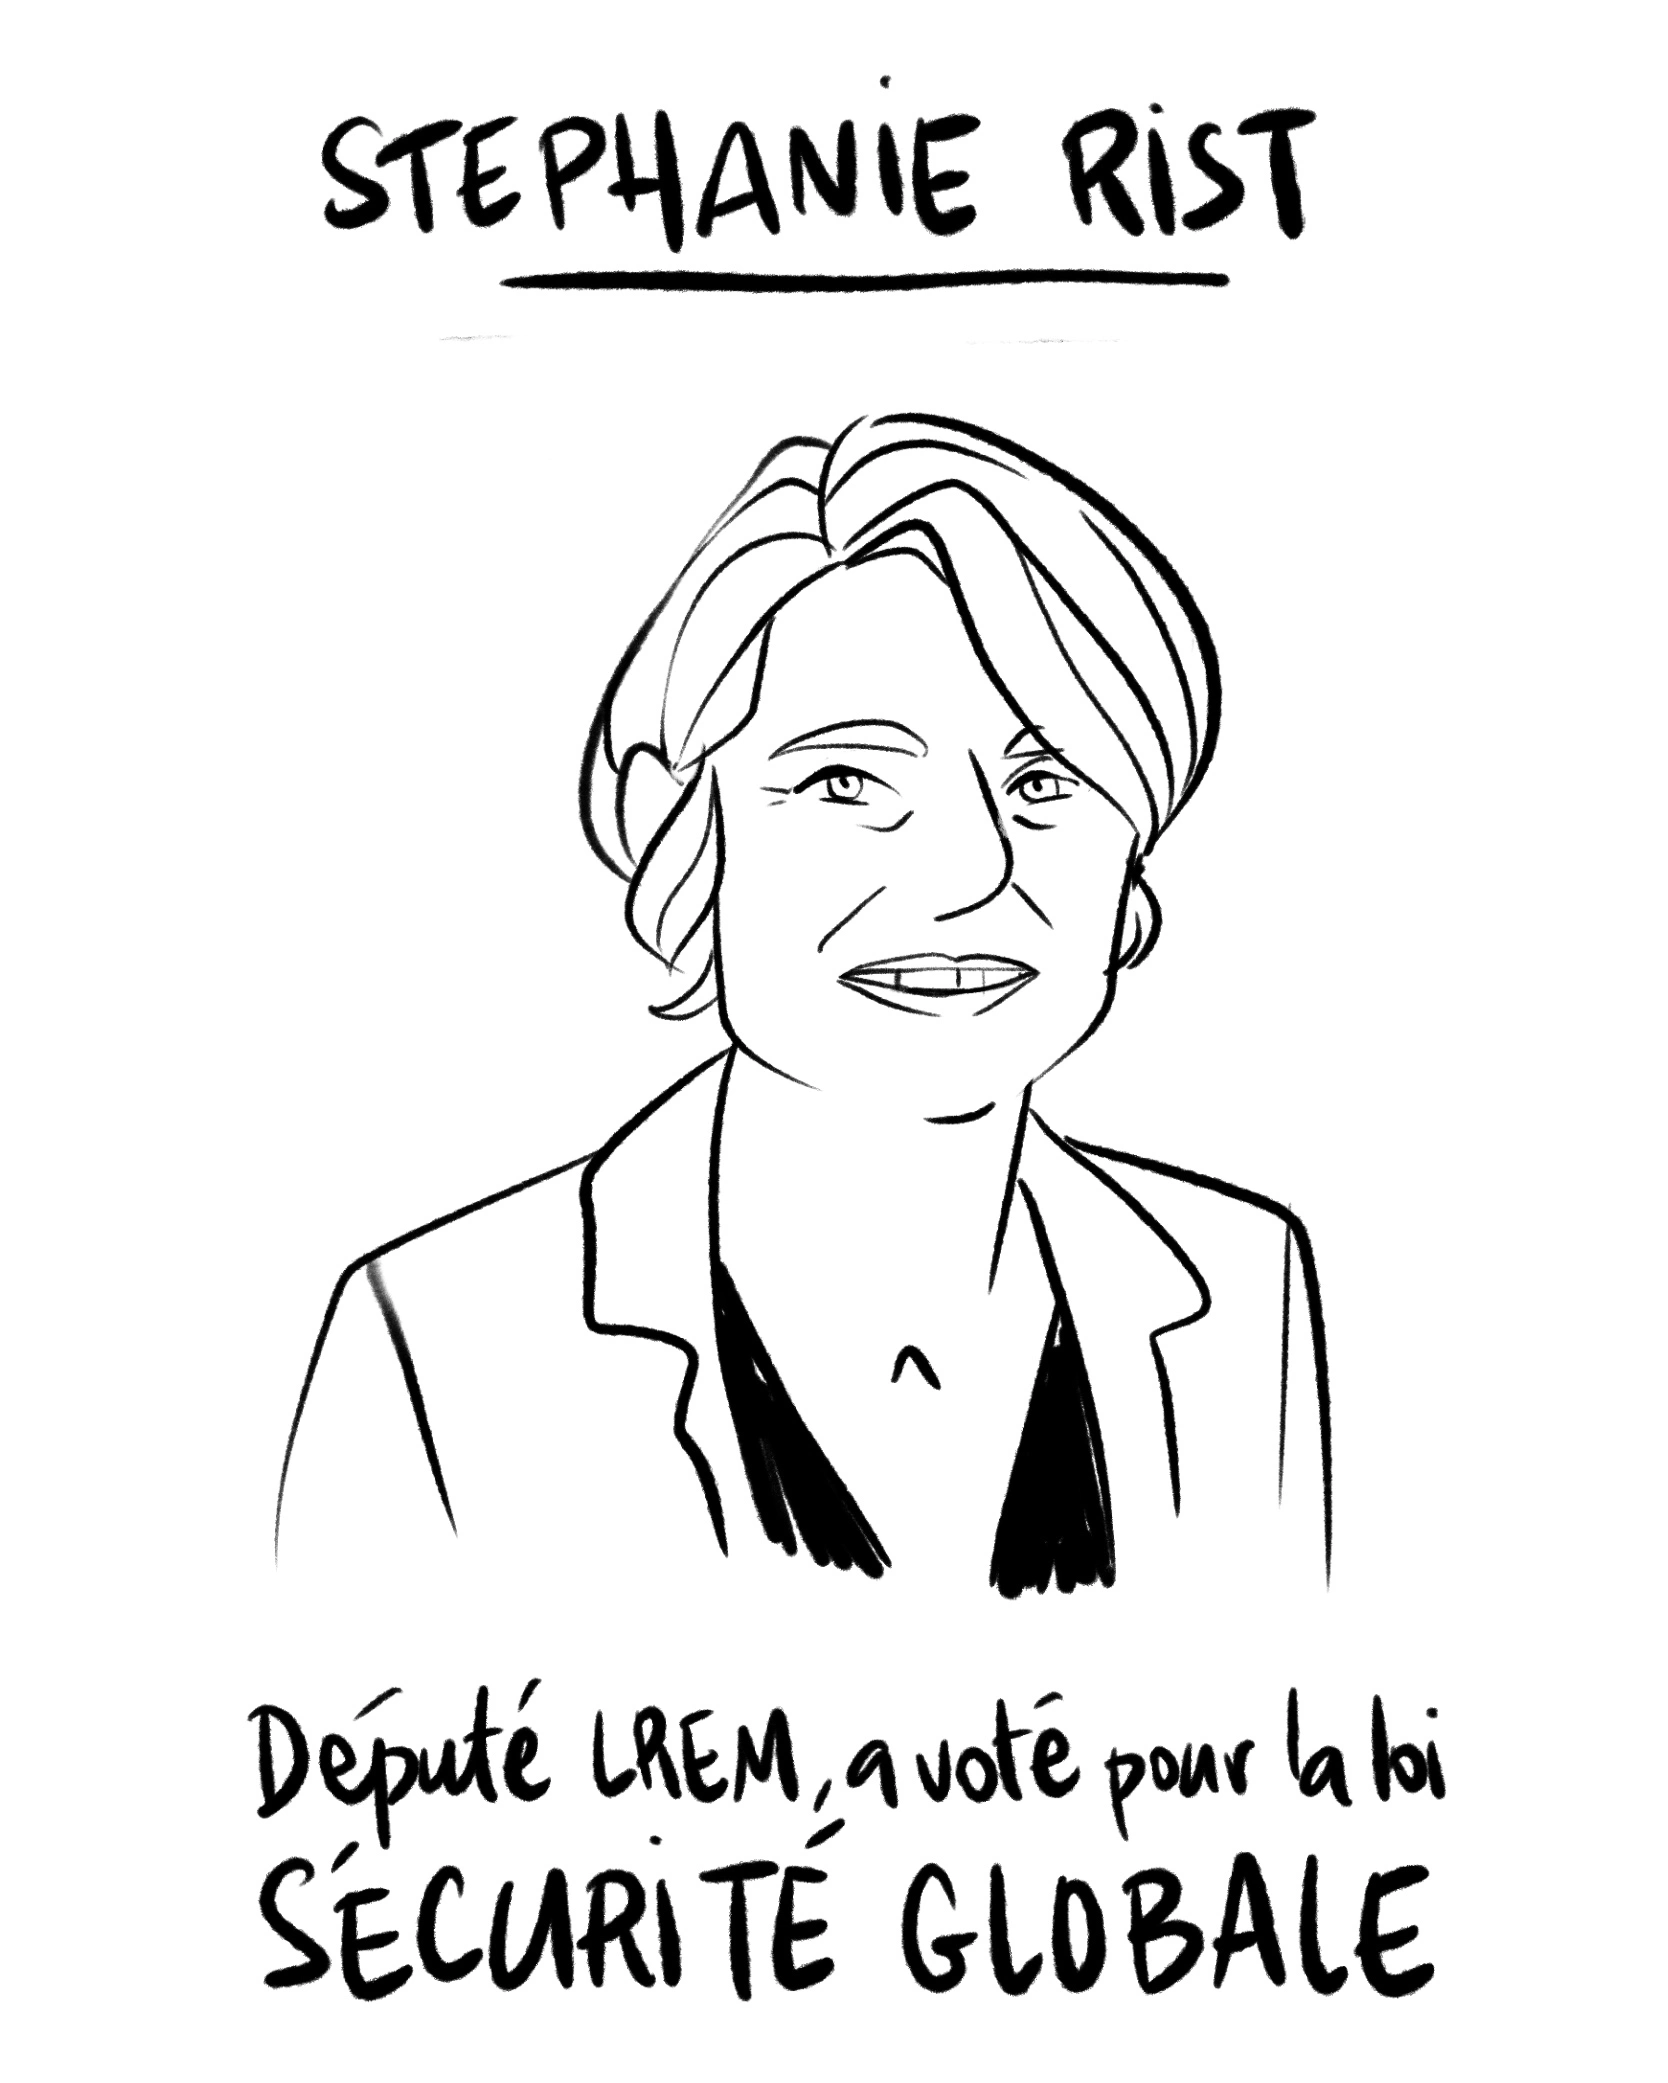 STEPHANiE RiST
Député LREM, a voté pour la loi
SÉCURiTÉ GLOBALE